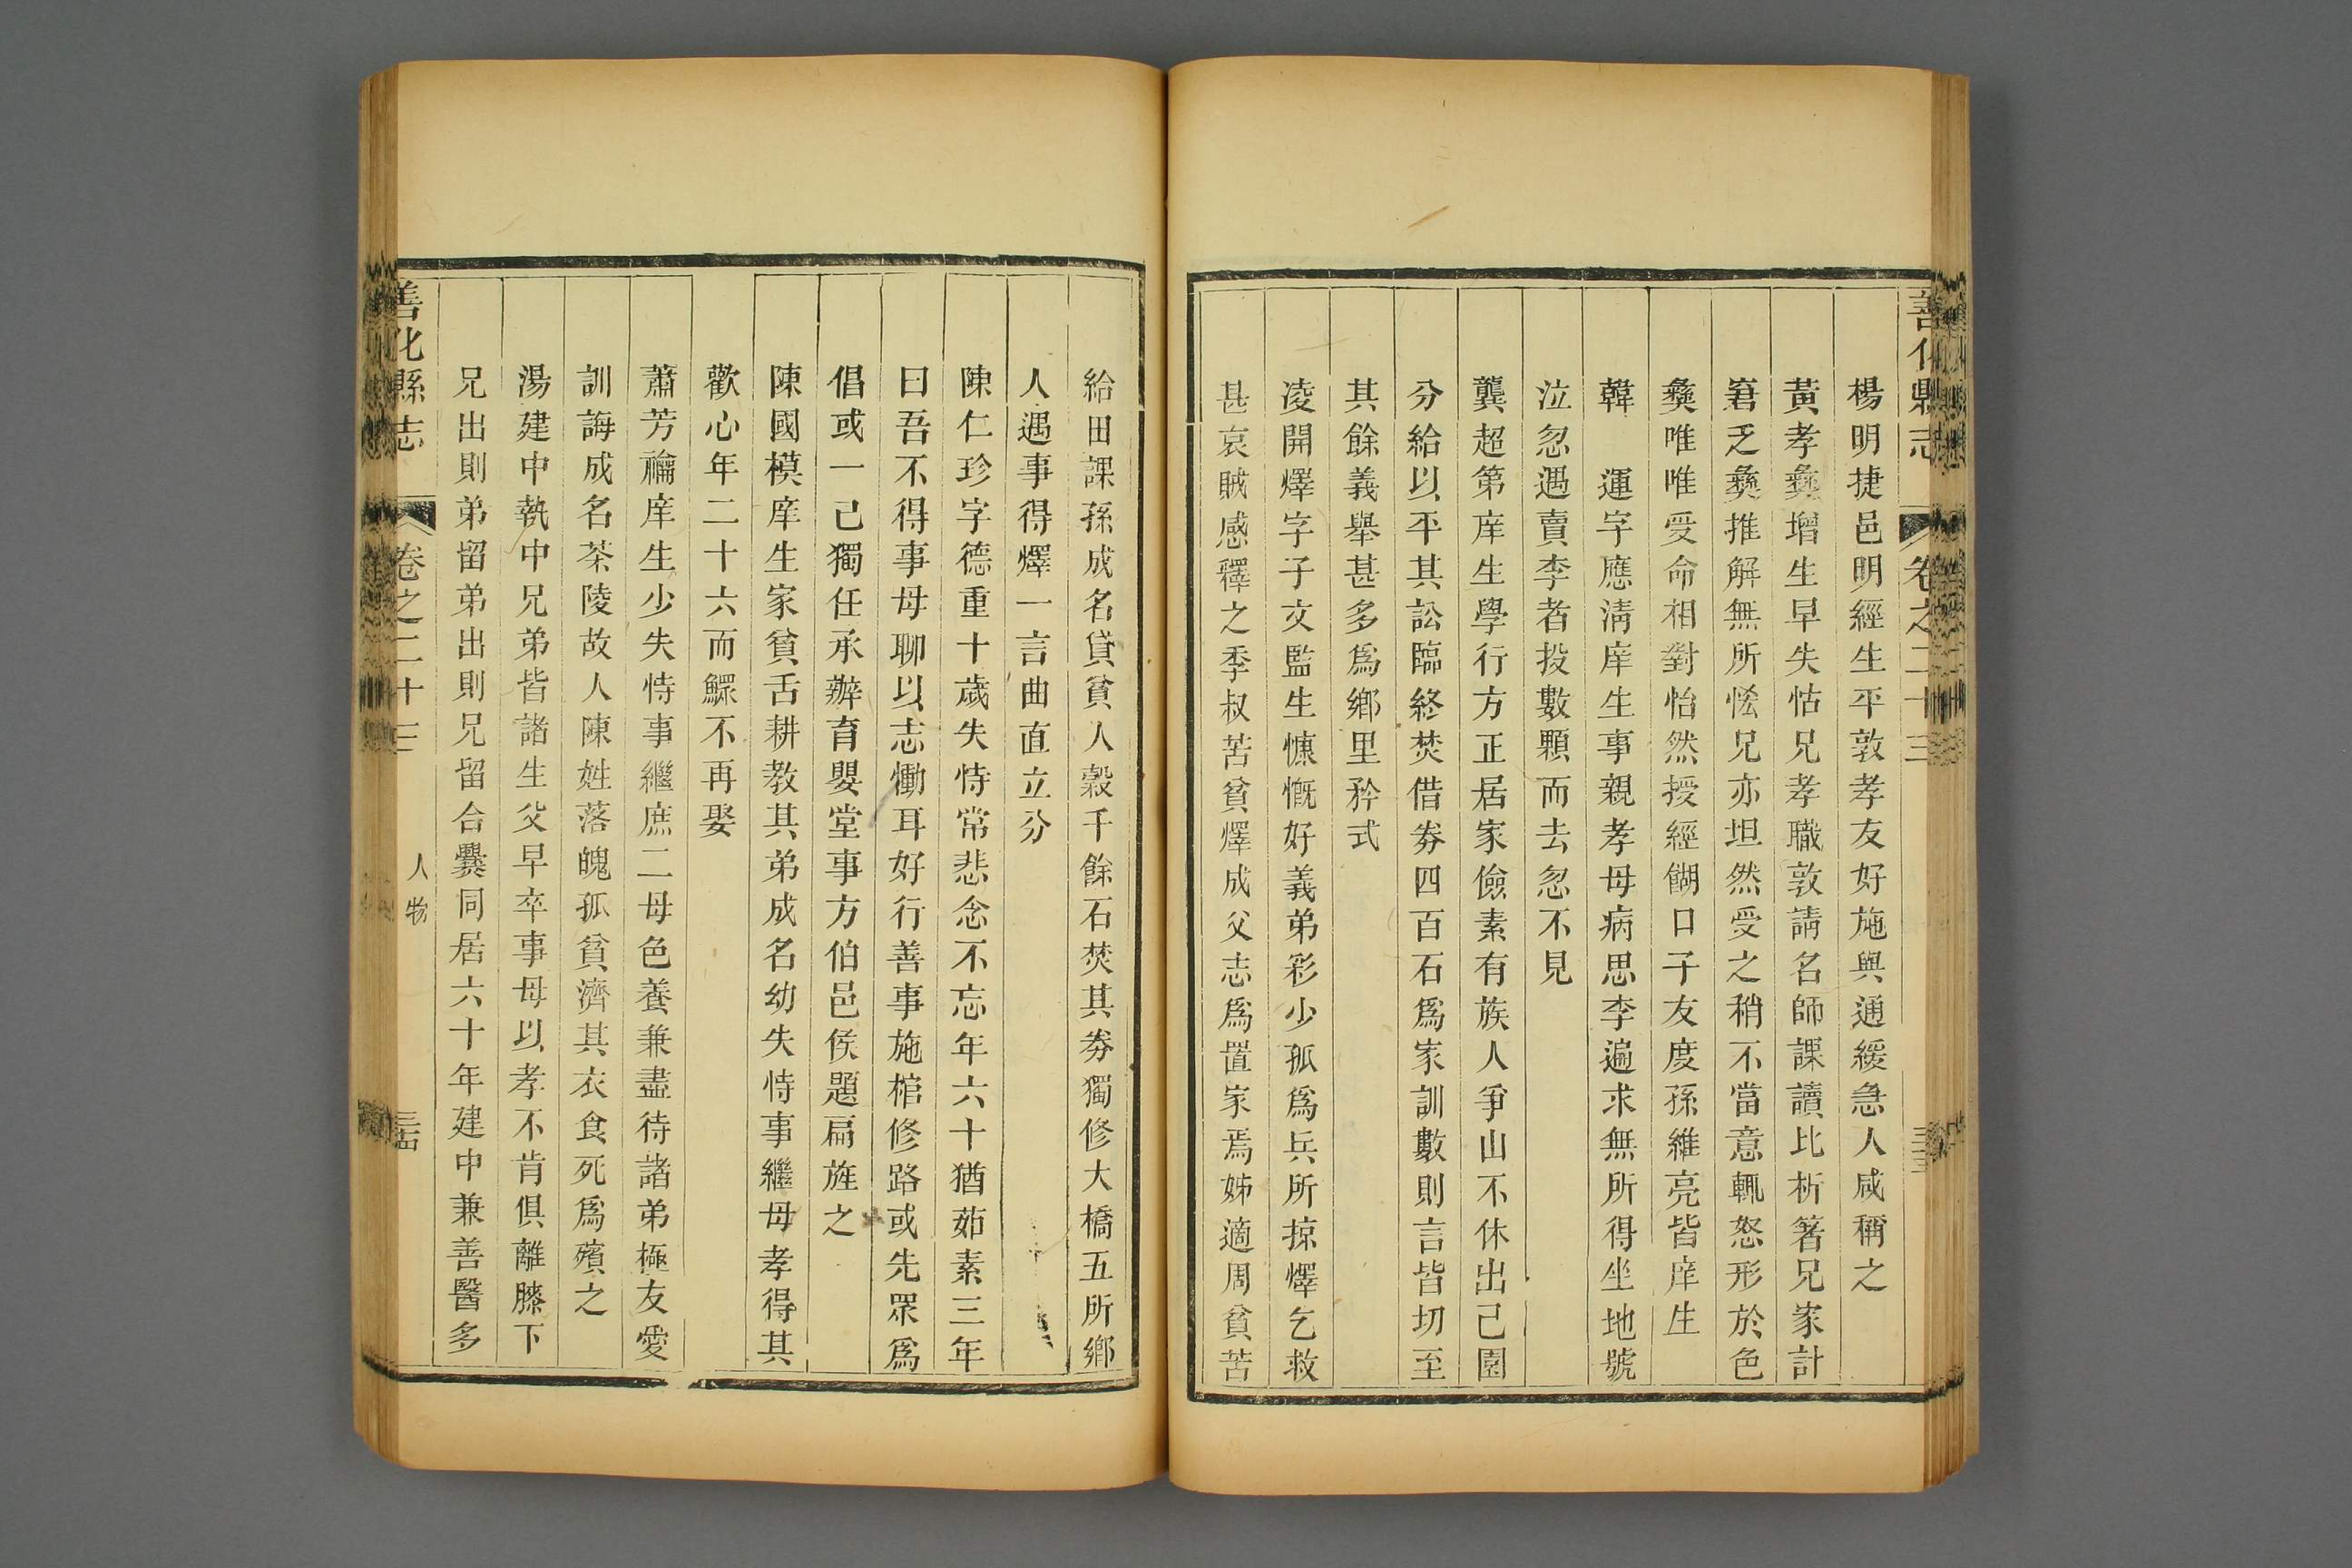 善化縣志 卷之二十三 三三
楊明捷邑明經生平敦孝友好施與通緩急人咸稱之
黃孝彝增生早失怙兄孝職敦請名師課讀比析箸兄家計
窘乏彝推解無所恡兄亦坦然受之稍不當意輒怒形於色
彝唯唯受命相對怡然授經餬口子友度孫維亮皆庠生
韓 運字應淸庠生事親孝母病思李遍求無所得坐地號
泣忽遇賣李者投數顆而去忽不見
龔超第庠生學行方正居家儉素有族人爭山不休出己園
分給以平其訟臨終焚借券四百石爲家訓數則言皆切至
其餘義舉甚多爲鄉里矜式
凌開燡字子文監生慷慨好義弟彩少孤爲兵所掠燡乞救
甚哀賊感釋之季叔苦貧燡成父志爲置家焉姊適周貧苦
給田課孫成名貸貧人穀千餘石焚其券獨修大橋五所鄉
人遇事得燡一言曲直立分
陳仁珍字德重十歲失恃常悲念不忘年六十猶茹素三年
曰吾不得事母聊以志慟耳好行善事施棺修路或先眾爲
倡或一己獨任承辦育嬰堂事方伯邑侯題扁旌之
陳國模庠生家貧舌耕教其弟成名幼失恃事繼母孝得其
歡心年二十六而鰥不再娶
蕭芳禴庠生少失恃事繼庶二母色養兼盡待諸弟極友愛
訓誨成名茶陵故人陳姓落魄孤貧濟其衣食死爲殯之
湯建中執中兄弟皆諸生父早卒事母以孝不肯俱離膝下
兄出則弟留弟出則兄留合爨同居六十年建中兼善醫多
善化縣志 卷之二十三 人物 三四